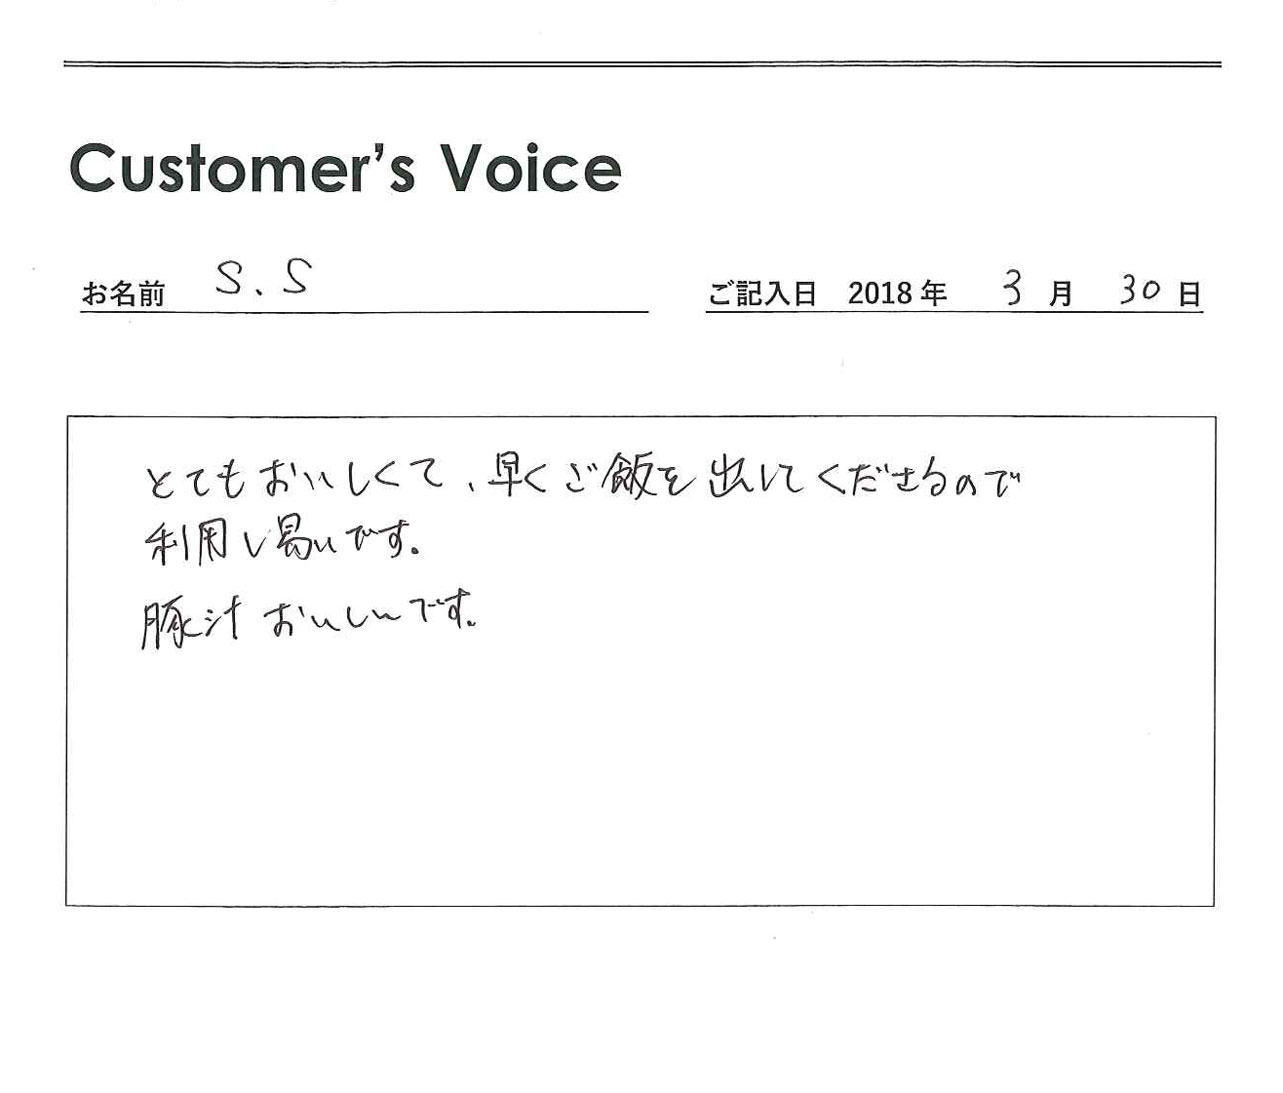 Customer's Voice
お名前 S.S ご記入日 2018年 3月 30日
とてもおいしくて、早くご飯を出してくださるので
利用し易いです。
豚汁おいしいです。